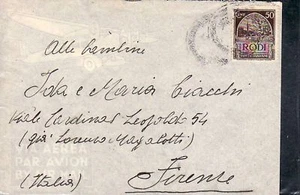 50
RODI
Alle bambine
Ida e Maria Ciacchi
Viale Cardinal Leopoldo 54
(già Lorenzo Magalotti)
Firenze
(Italia)
PAR AVION